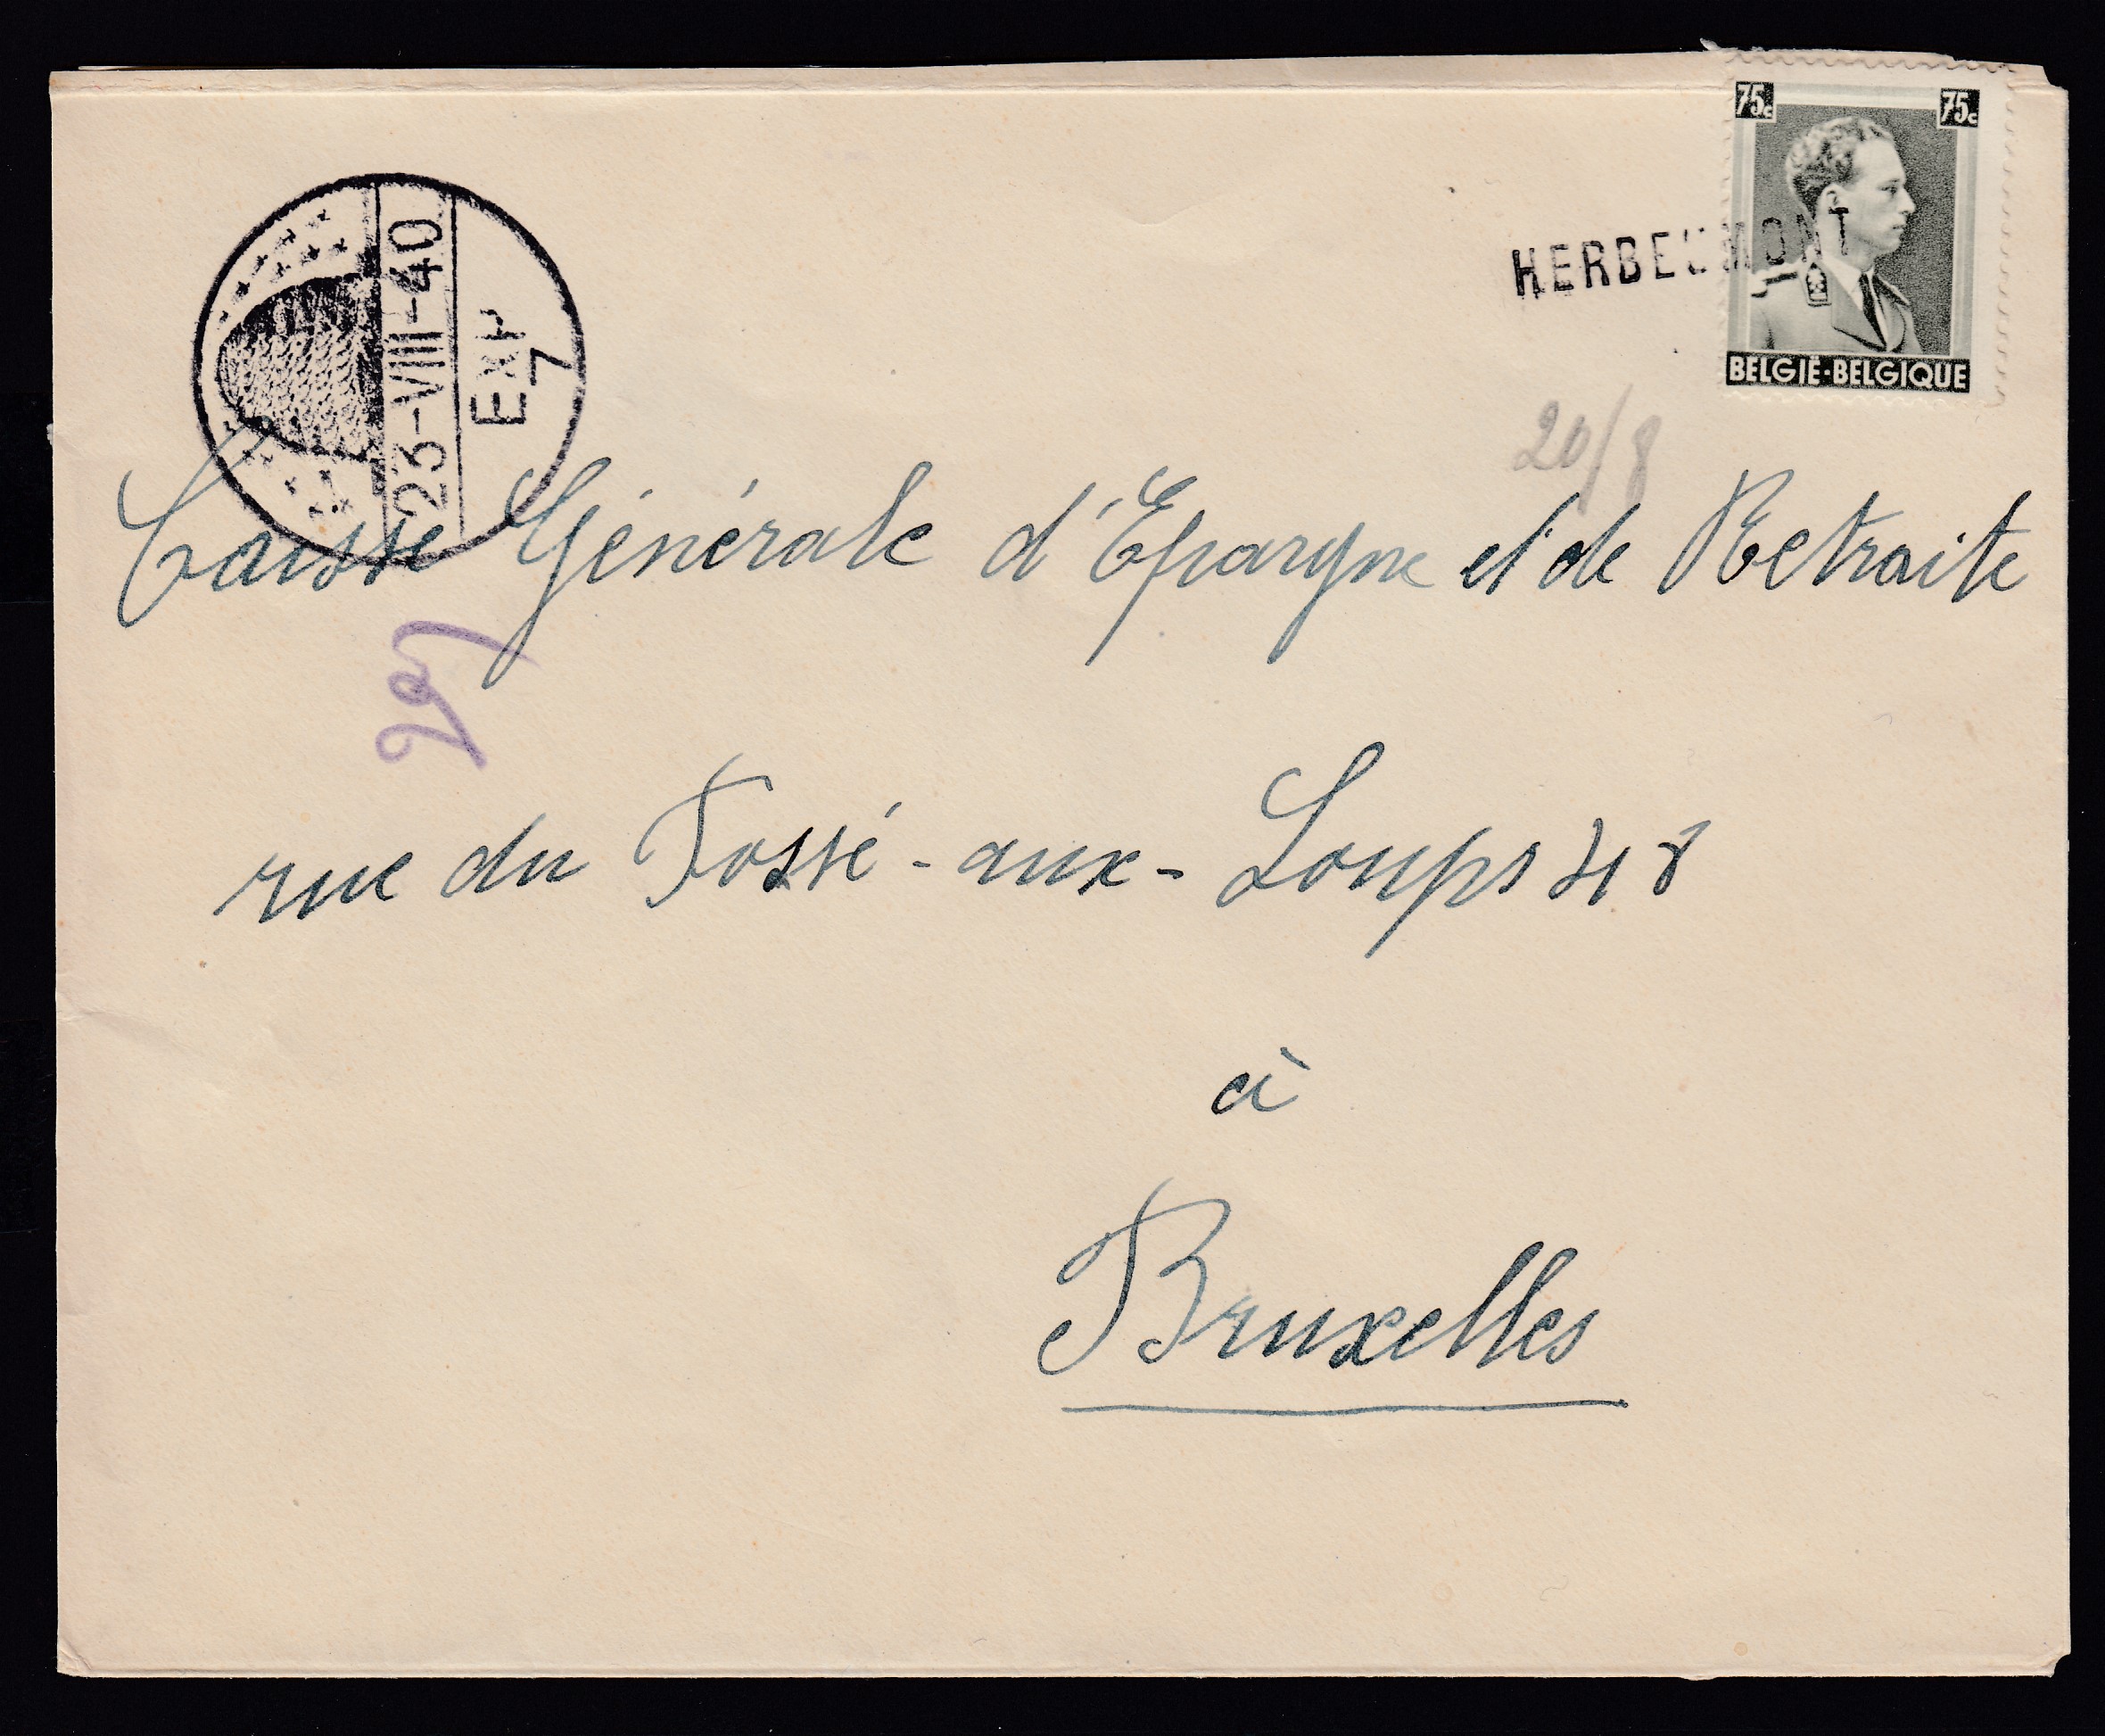 75c 75c
HERBEUMONT
BELGIË-BELGIQUE
23-VIII-40
EXP
7
20/8
Caisse Générale d'Épargne et de Retraite
rue du Fossé-aux-Loups 48
à
Bruxelles